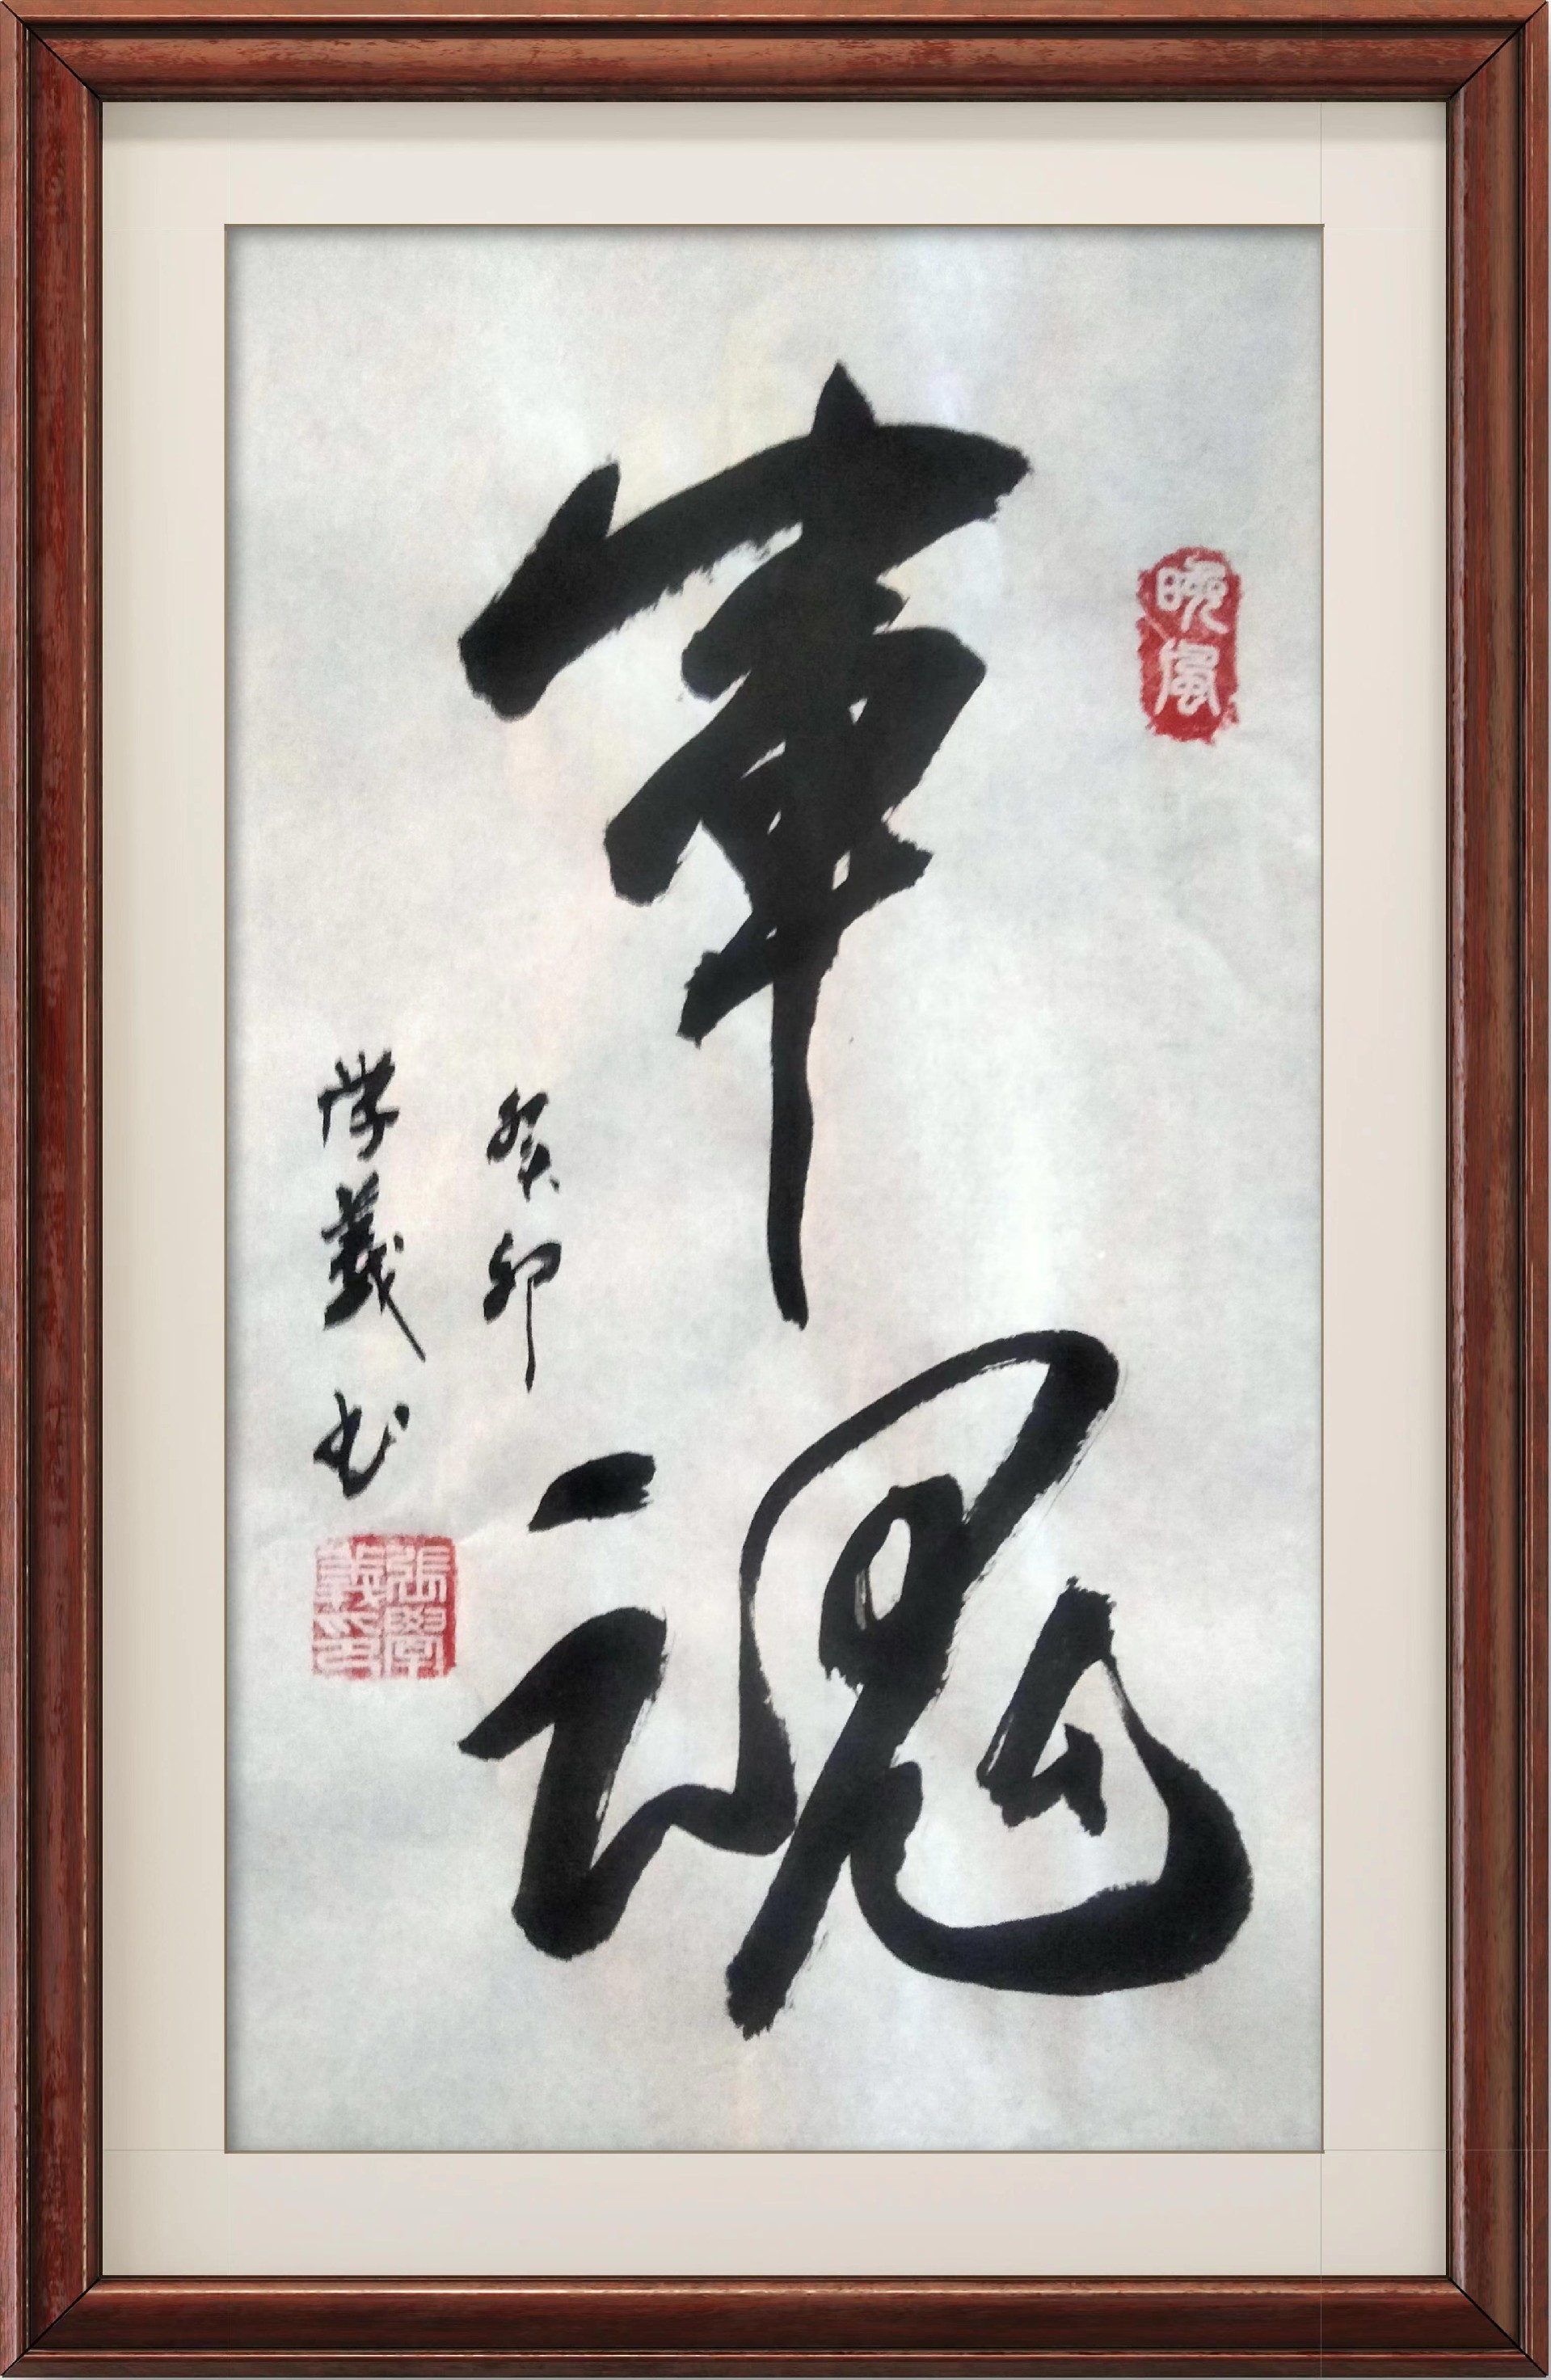 军魂
癸卯
学義书
晚風
張學義印